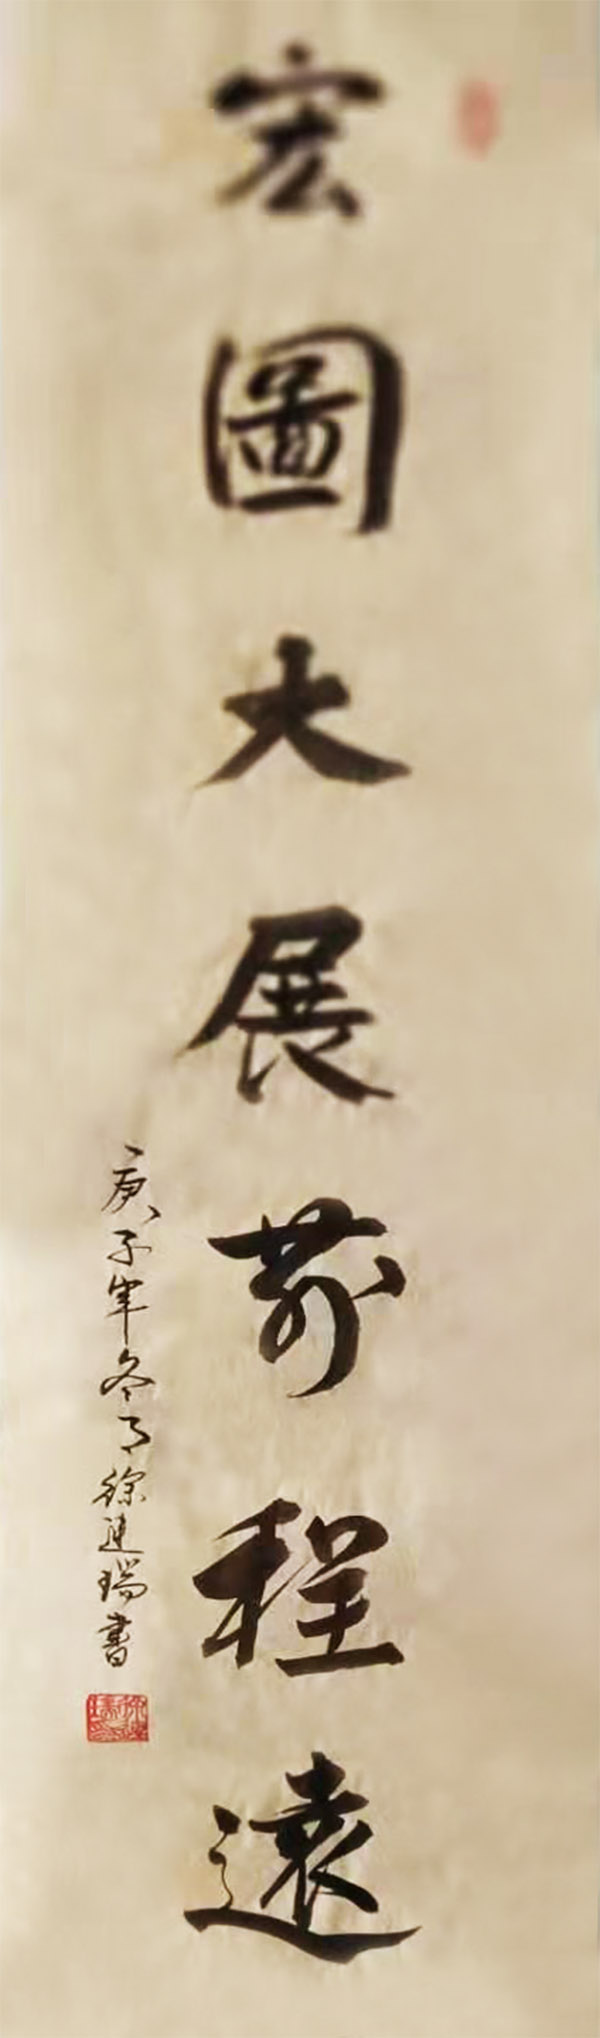 宏圖大展前程遠
庚子年冬月徐建瑞書